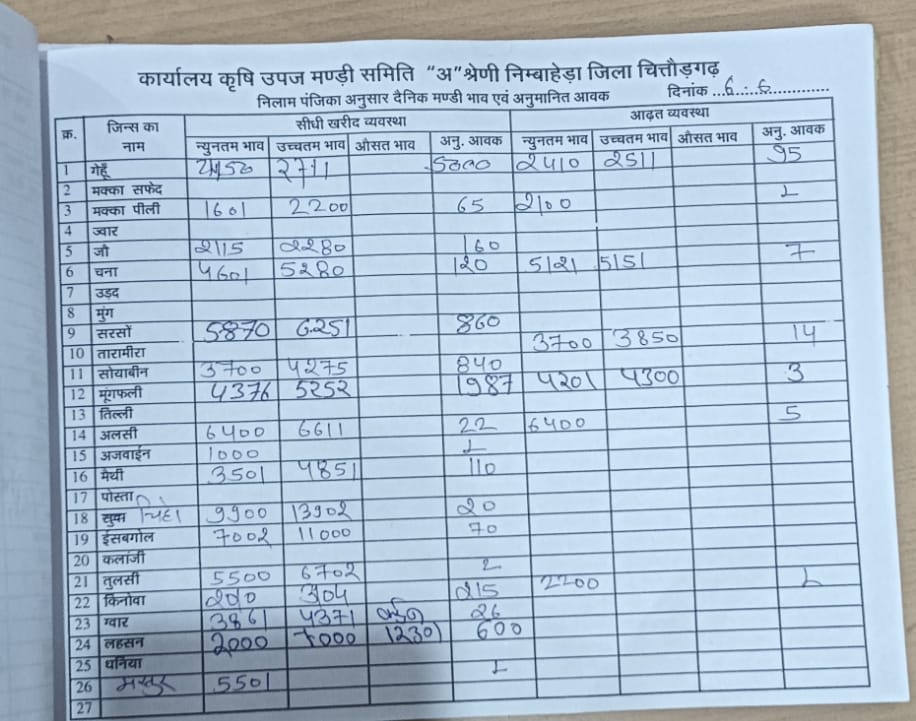 कार्यालय कृषि उपज मण्ड़ी समिति "अ"श्रेणी निम्बाहेड़ा जिला चित्तौड़गढ़
निलाम पंजिका अनुसार दैनिक मण्डी भाव एवं अनुमानित आवक दिनांक ..6..:..6.............
क्र. जिन्स का नाम सीधी खरीद व्यवस्था आढ़त व्यवस्था
न्युनतम भाव उच्चतम भाव औसत भाव अनु. आवक न्युनतम भाव उच्चतम भाव औसत भाव अनु. आवक
1 गेहूँ 2711 5000 2410 2511 95
2 मक्का सफेद
3 मक्का पीली 1601 2200 65 2100 1
4 ज्वार
5 जौ 2115 2280 160
6 चना 4601 5280 120 5121 5151 7
7 उड़द
8 मुंग
9 सरसों 5870 6251 860
10 तारामीरा 3700 3850 14
11 सोयाबीन 3700 4275 840
12 मूंगफली 4376 5252 1987 4201 4300 3
13 तिल्ली
14 अलसी 6400 6611 22 6400 5
15 अजवाईन 1000 1
16 मैथी 3501 4851 110
17 पोस्ता
18 9900 13902 20
19 ईसबगोल 7002 11000 70
20 कलांजी
21 तुलसी 5500 6702 2
22 किनोवा 200 304 215 2200 1
23 ग्वार 3861 4371 26
24 लहसन 2000 7000 12301 600
25 धनिया
26 मसूर 5501 1
27